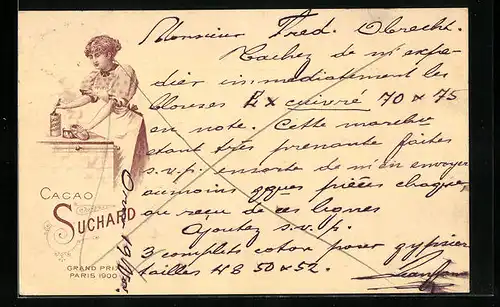 Monsieur Fred. Obrecht.
Tachez de m'expé-
dier immédiatement les
blouses EX cuivré 70 & 75
en note. Cette marchse
étant très prenante faites
s.v.p. ensorte de m'en envoyer
au moins qques pièces chaque,
au reçu de ces lignes
Ajoutez s.v.p.
3 complets coton pour gypsier
tailles 48 50 & 52.
CACAO
SUCHARD
GRAND PRIX
PARIS 1900